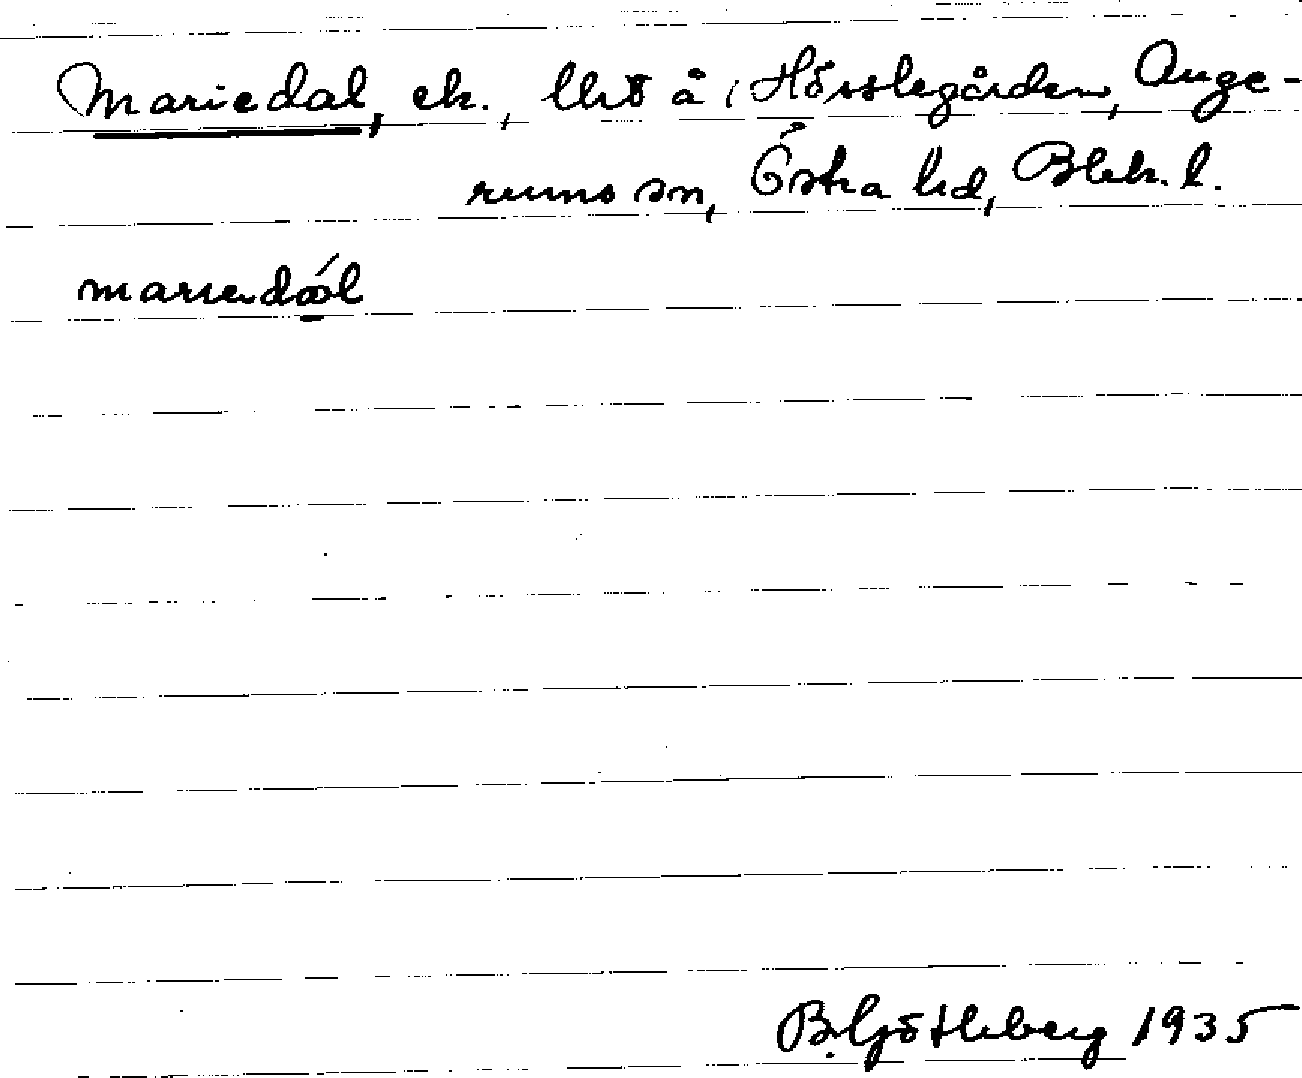 Mariedal, ek., lht å Hösslegården, Auge-
rums sn, Östra hd, Blek. l.
mariedál
B. Götlberg 1935